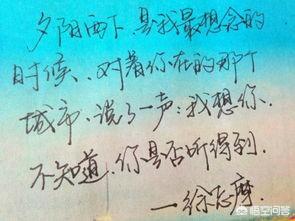 夕阳西下是我最想念的
时候、对着你在的那个
城市.说了一声:我想你.
不知道.你是否听得到.
—徐志摩
悟空问答